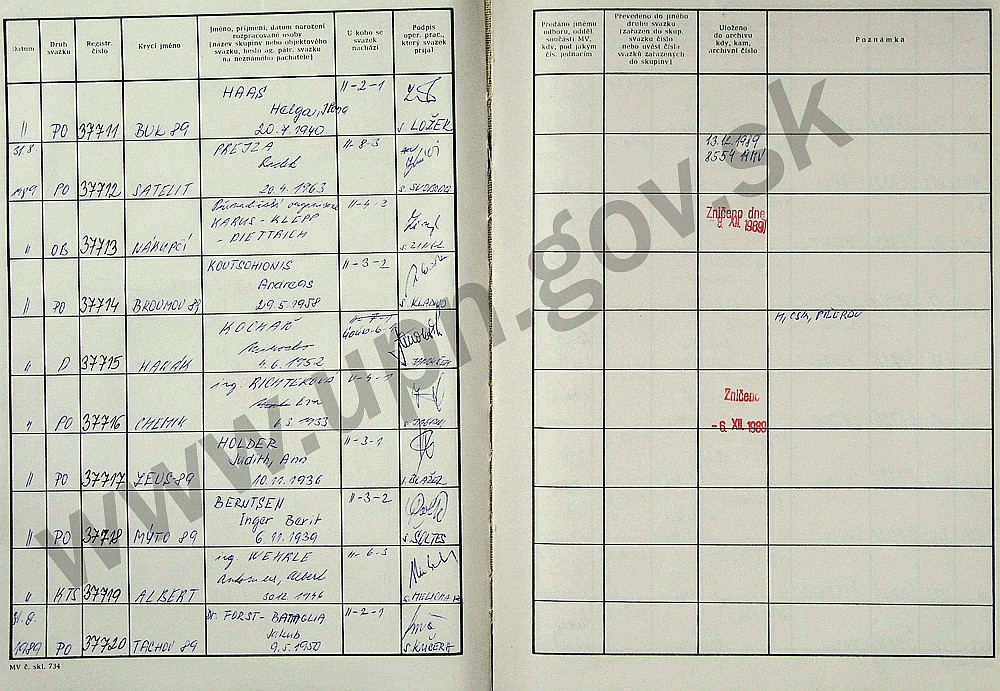 Datum
Druh
svazku
Registr.
číslo
Krycí jméno
Jméno, příjmení, datum narození
rozpracované osoby
(název skupiny nebo objektového
svazku, heslo ag. pátr. svazku
na neznámého pachatele)
U koho se
svazek
nachází
Podpis
oper. prac.,
který svazek
přijal
Předáno jinému
odboru, odděl.
součásti MV,
kdy, pod jakým
čís. jednacím
Převedeno do jiného
druhu svazku
(zařazen do skup.
svazku číslo
nebo uvést čísla
svazků zařazených
do skupiny)
Uloženo
do archivu
kdy, kam,
archivní číslo
Poznámka
HAAS
Helga, Ilona
20.7.1940
II-2-1
" PO 37711 BUK 89
s. LOŽEK
31.8.
1989 PO 37712 SATELIT
PREJZA
Radek
20.4.1963
II-8-3
s. SVOBODA
13.12.1989
8554 AMV
" OB 37713 NÁKUPČÍ
KARUS-KLEPP
-DIETTRICH
II-4-2
Zničeno dne
8. XII. 1989
" PO 37714 BROUMOV 89
KOUTSOHIONIS
Andreas
29.5.1958
II-3-2
s. KLADIVO
" D 37715 HANÁK
KOCHAŇ
4.6.1952
" PO 37716 CHEMIK
ing. RICHTEROVÁ
Eva
1953
II-4-1
Zničeno
-6. XII. 1989
" PO 37717 ZEUS-89
HOLDER
Judith, Ann
10.11.1936
II-3-1
s. BLAŽEK
" PO 37718 MÝTO 89
BERNTSEN
Inger Berit
6.11.1939
II-3-2
s. ŠOLTES
" KTS 37719 ALBERT
ing. WEHRLE
Albert
1946
II-6-3
31.8.
1989 PO 37720 TACHOV 89
Dr. FORST-BATAGLIA
Jakub
9.5.1950
II-2-1
s. KUČERA
MV č. skl. 734
www.upn.gov.sk